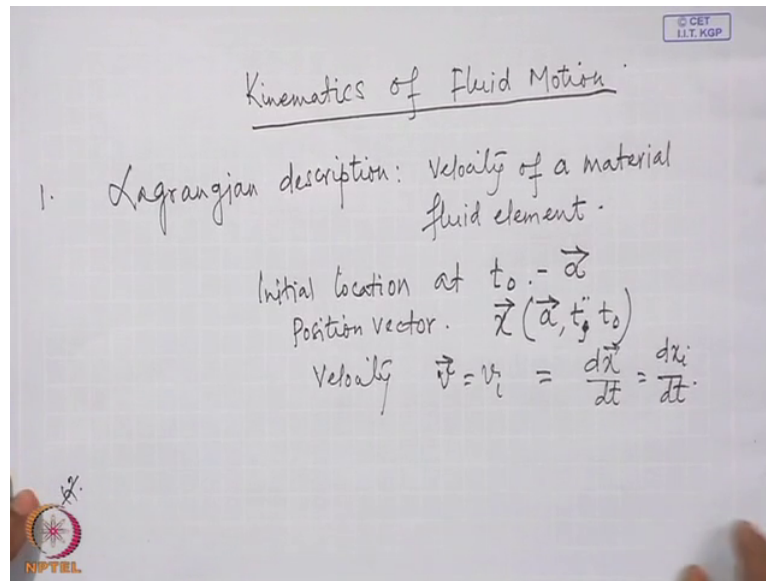 © CET
I.I.T. KGP
Kinematics of Fluid Motion
1. Lagrangian description: Velocity of a material
fluid element.
Initial location at t₀ - a⃗
Position vector. x⃗ (a⃗, t, t₀)
Velocity v⃗ = vᵢ = dx⃗/dt = dxᵢ/dt.
NPTEL